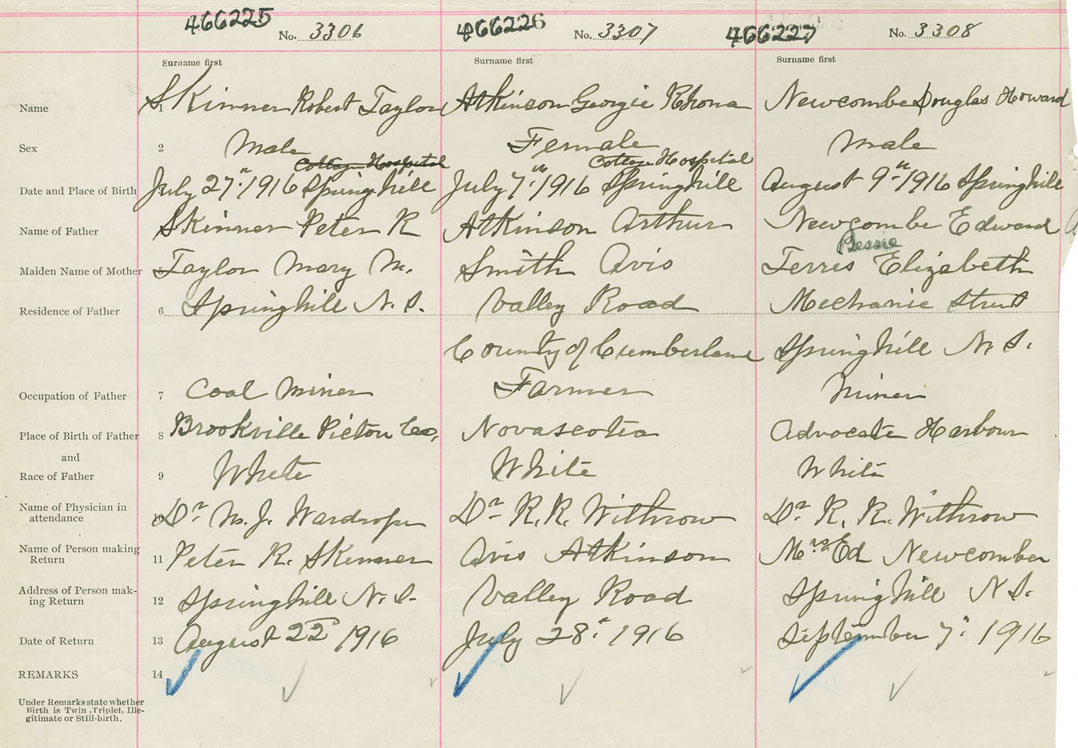 466225 No. 3306 466226 No. 3307 466227 No. 3308
Surname first Surname first Surname first
Name 1 Skinner Robert Taylor Atkinson Georgie Rhona Newcombe Douglas Howard
Sex 2 Male Female Male
Cottage Hospital Cottage Hospital
Date and Place of Birth July 27th 1916 Springhill July 7th 1916 Springhill August 9th 1916 Springhill
Name of Father Skinner Peter R Atkinson Arthur Newcombe Edward
Bessie
Maiden Name of Mother Taylor Mary M. Smith Avis Terris Elizabeth
Residence of Father 6 Springhill N.S. Valley Road Mechanic Street
County of Cumberland Springhill N.S.
Occupation of Father 7 Coal Miner Farmer Miner
Place of Birth of Father 8 Brookville Pictou Co, Novascotia Advocate Harbour
and
Race of Father 9 White White White
Name of Physician in
attendance 10 Dr M. J. Wardrope Dr R. R. Withrow Dr R. R. Withrow
Name of Person making
Return 11 Peter R. Skinner Avis Atkinson Mrs Ed Newcombe
Address of Person mak-
ing Return 12 Springhill N.S. Valley Road Springhill N.S.
Date of Return 13 August 22d 1916 July 28th 1916 September 7th 1916
REMARKS 14
Under Remarks state whether
Birth is Twin, Triplet, Ille-
gitimate or Still-birth.